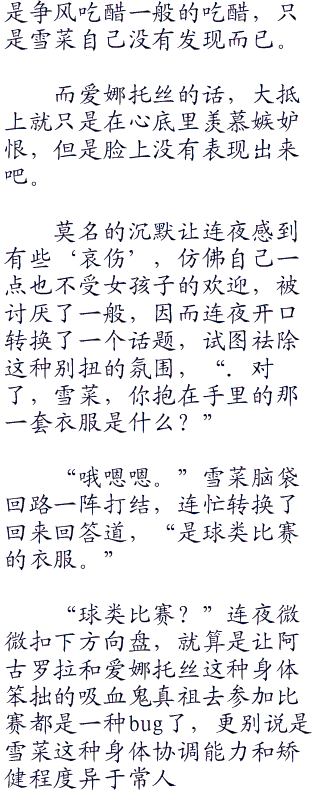 是争风吃醋一般的吃醋，只
是雪菜自己没有发现而已。
而爱娜托丝的话，大抵
上就只是在心底里羡慕嫉妒
恨，但是脸上没有表现出来
吧。
莫名的沉默让连夜感到
有些‘哀伤’，仿佛自己一
点也不受女孩子的欢迎，被
讨厌了一般，因而连夜开口
转换了一个话题，试图祛除
这种别扭的氛围，“．对
了，雪菜，你抱在手里的那
一套衣服是什么？”
“哦嗯嗯。”雪菜脑袋
回路一阵打结，连忙转换了
回来回答道，“是球类比赛
的衣服。”
“球类比赛？”连夜微
微扣下方向盘，就算是让阿
古罗拉和爱娜托丝这种身体
笨拙的吸血鬼真祖去参加比
赛都是一种bug了，更别说是
雪菜这种身体协调能力和矫
健程度异于常人